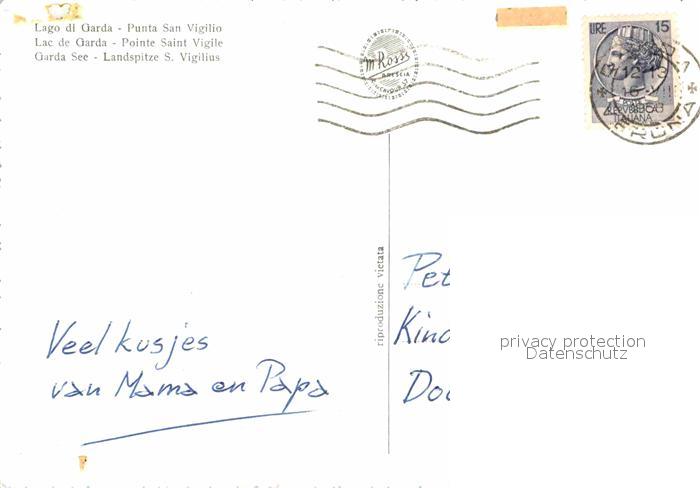 Lago di Garda - Punta San Vigilio
Lac de Garda - Pointe Saint Vigile
Garda See - Landspitze S. Vigilius
m Rossi
BRESCIA
LIRE 15
ITALIANA
riproduzione vietata
Veel kusjes
van Mama en Papa
Pet
Kinc
privacy protection
Datenschutz